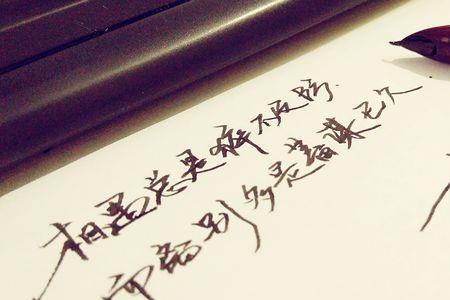 相遇总是猝不及防
而离别多是蓄谋已久